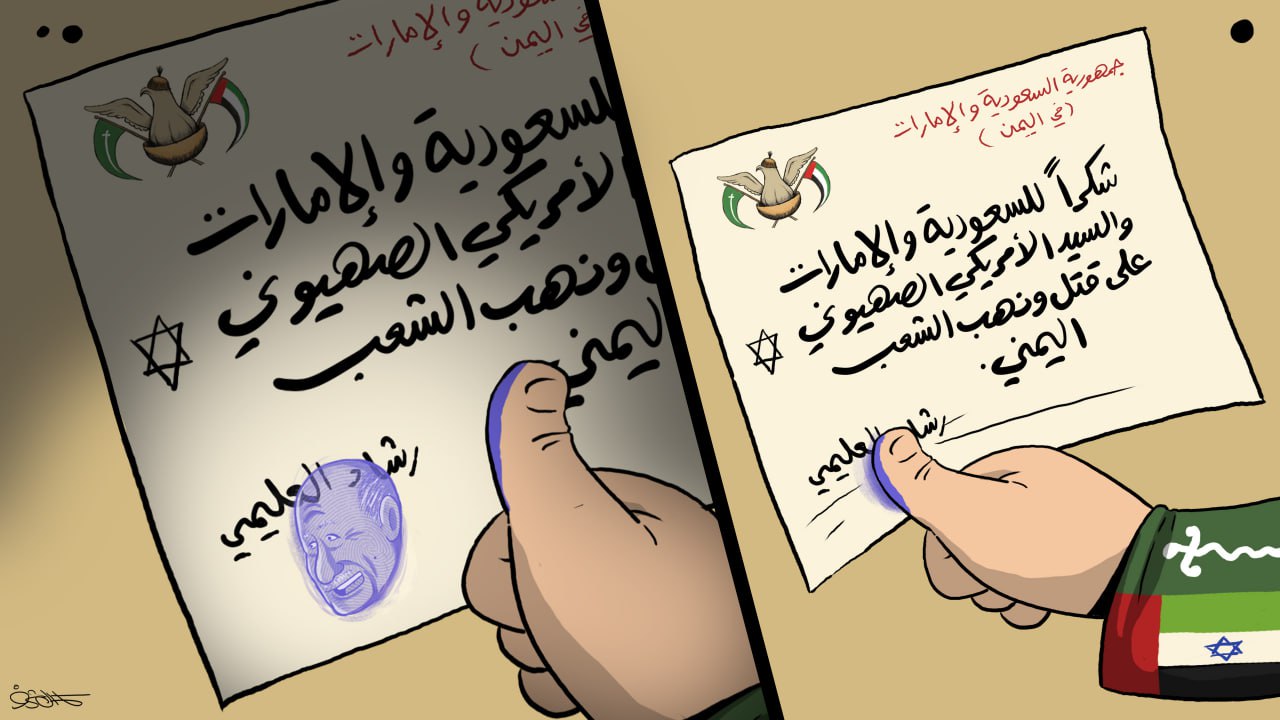 سعودية والإمارات
(في اليمن)
للسعودية والإمارات
الأمريكي الصهيوني
ل ونهب الشعب
اليمني.
رشاد العليمي
جمهورية السعودية والإمارات
(في اليمن)
شكراً للسعودية والإمارات
والسيد الأمريكي الصهيوني
على قتل ونهب الشعب
اليمني.
رشاد العليمي